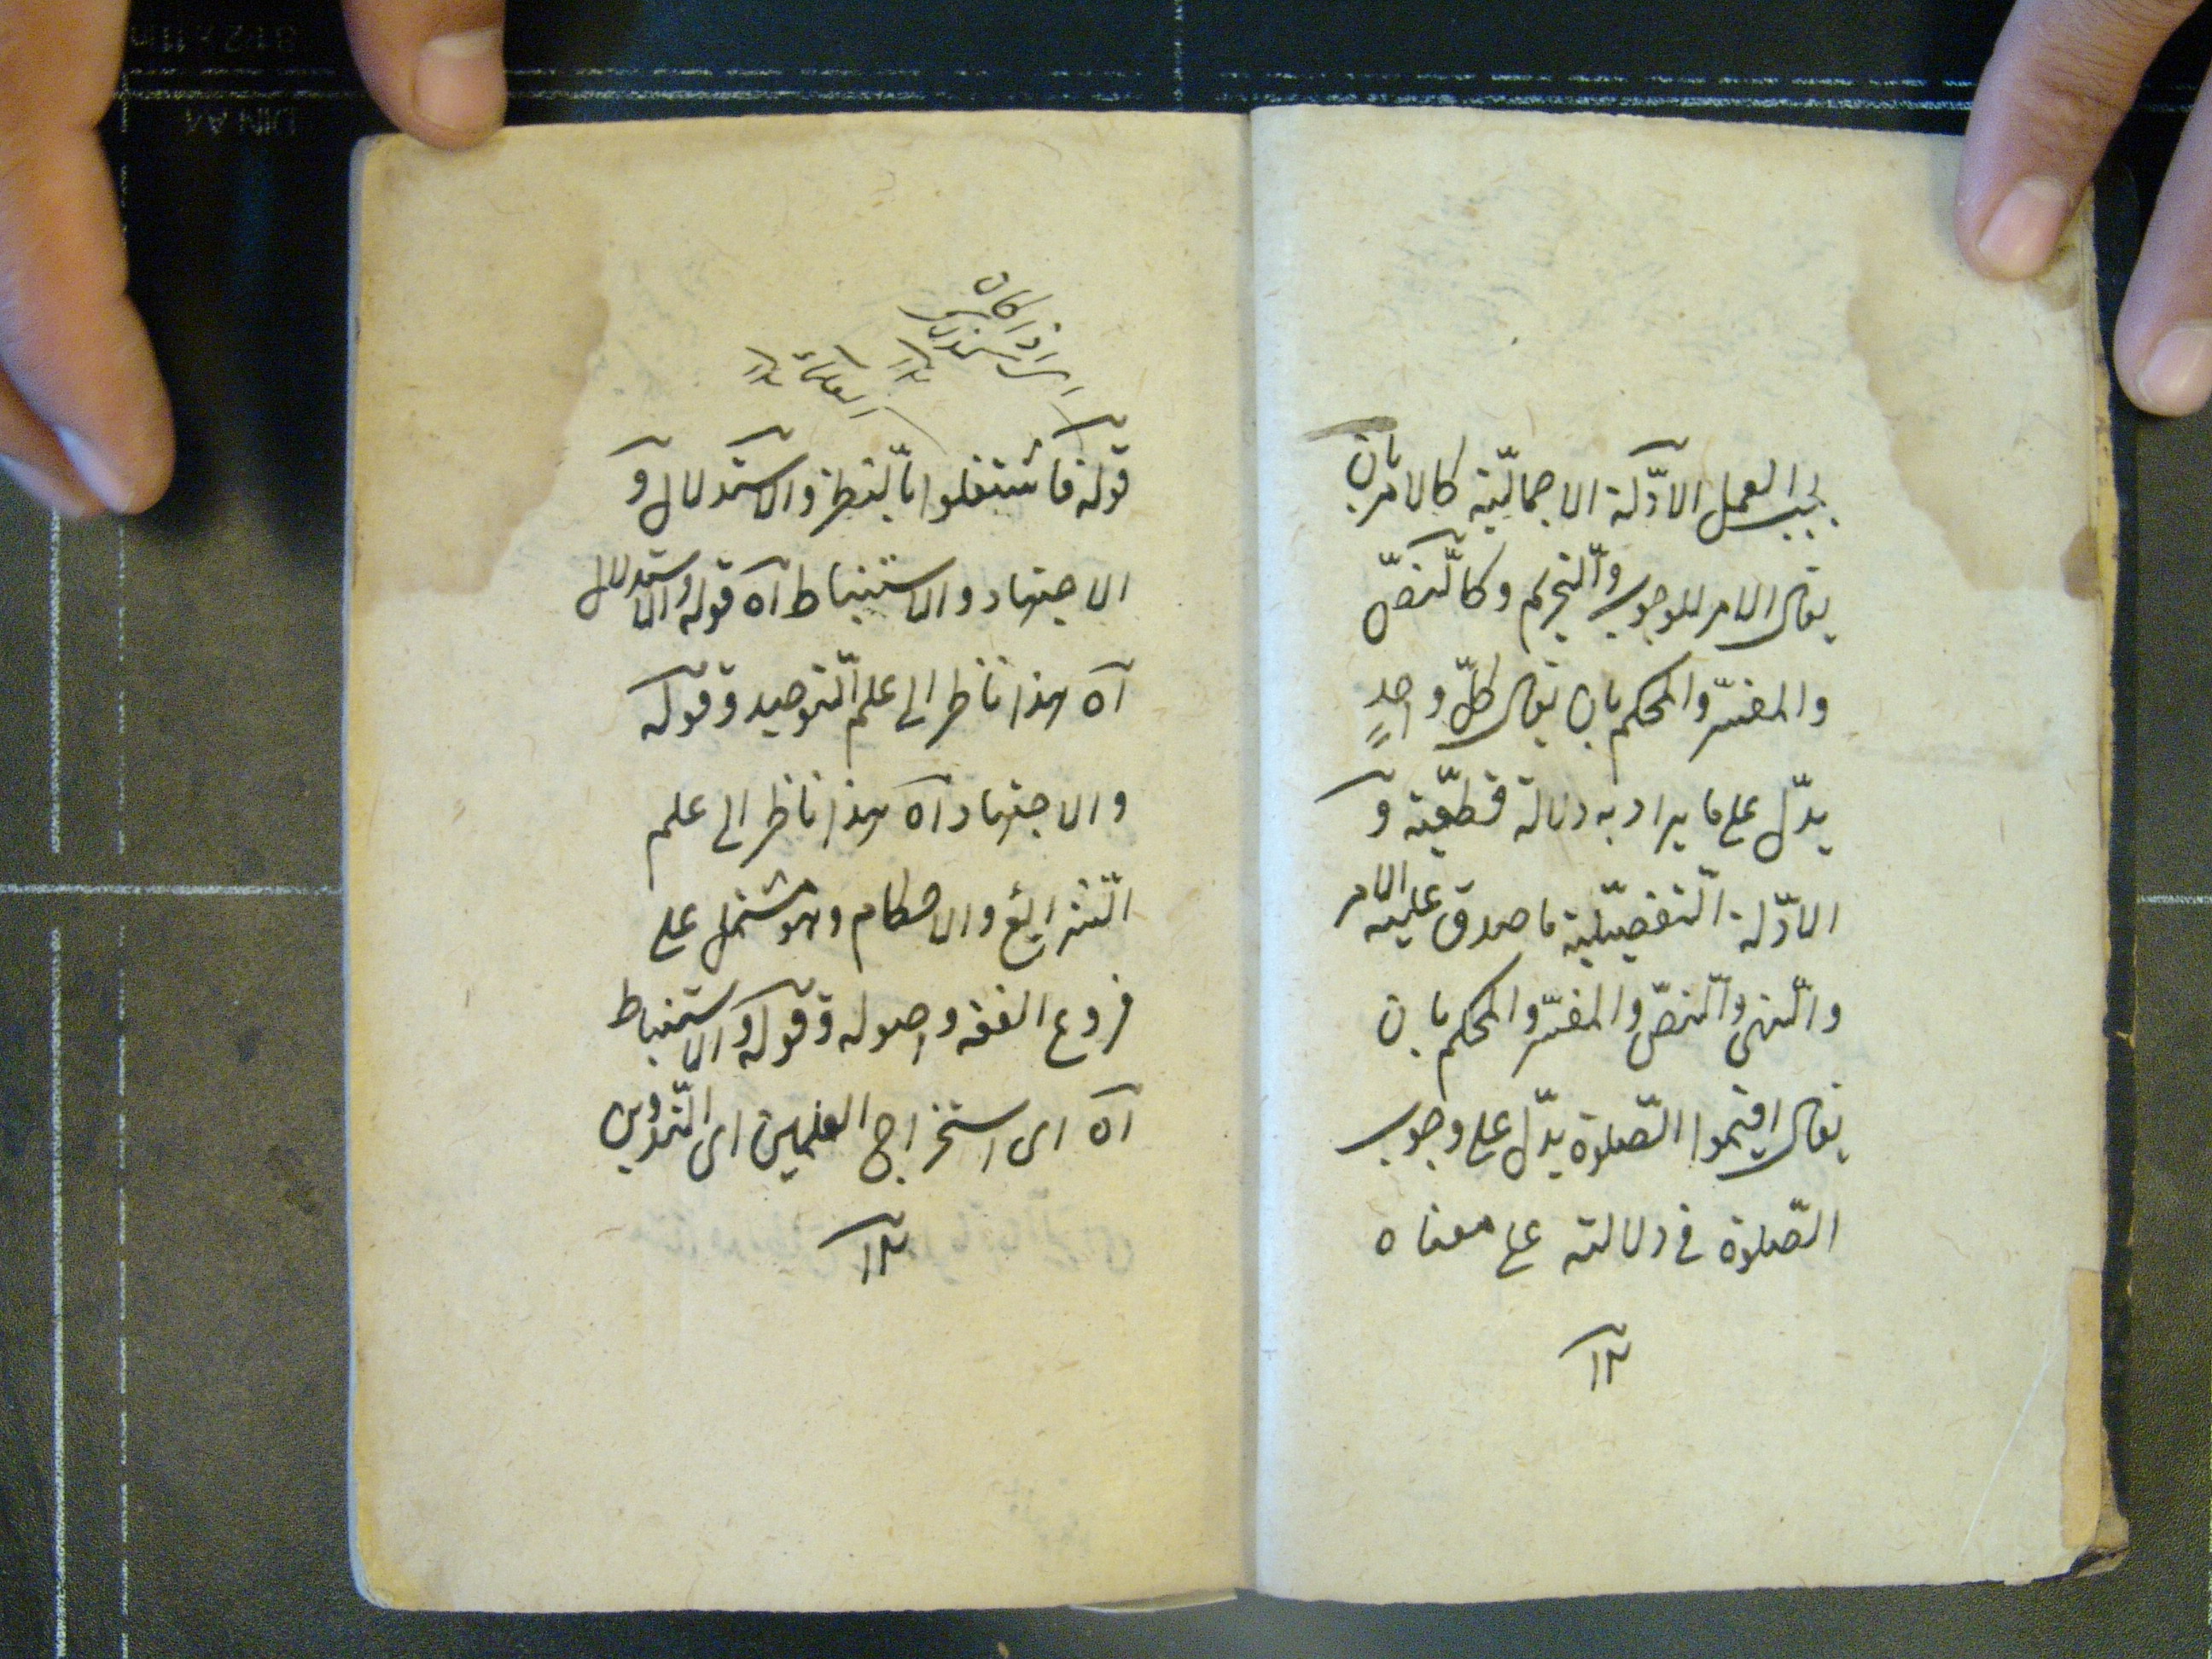 يجب العمل الادّلة الاجماليّة كالامر بان
يقال الامر للوجوب والتحريم وكالنصّ
والمفسّر والمحكم بان يقال كلّ واحدٍ
يدّل على ما يراد به دلالة قطعيّة و
الادّلة التفصيليّة ما صدق عليه الامر
والنهى والنصّ والمفسّر والمحكم بان
يقال اقيموا الصّلوة يدّل على وجوب
الصّلوة فى دلالته على معناه
١٢
اذا كان
١٢
١٢
قوله فاشتغلوا بالنظر والاستدلال و
الاجتهاد والاستنباط آه قوله والاستدلال
آه هذا ناظر الى علم التوحيد وقوله
والاجتهاد آه هذا ناظر الى علم
الشرايع والاحكام وهو مشتمل على
فروع الفقه واصوله وقوله والاستنباط
آه اى استخراج العلمين اى التدوين
١٢